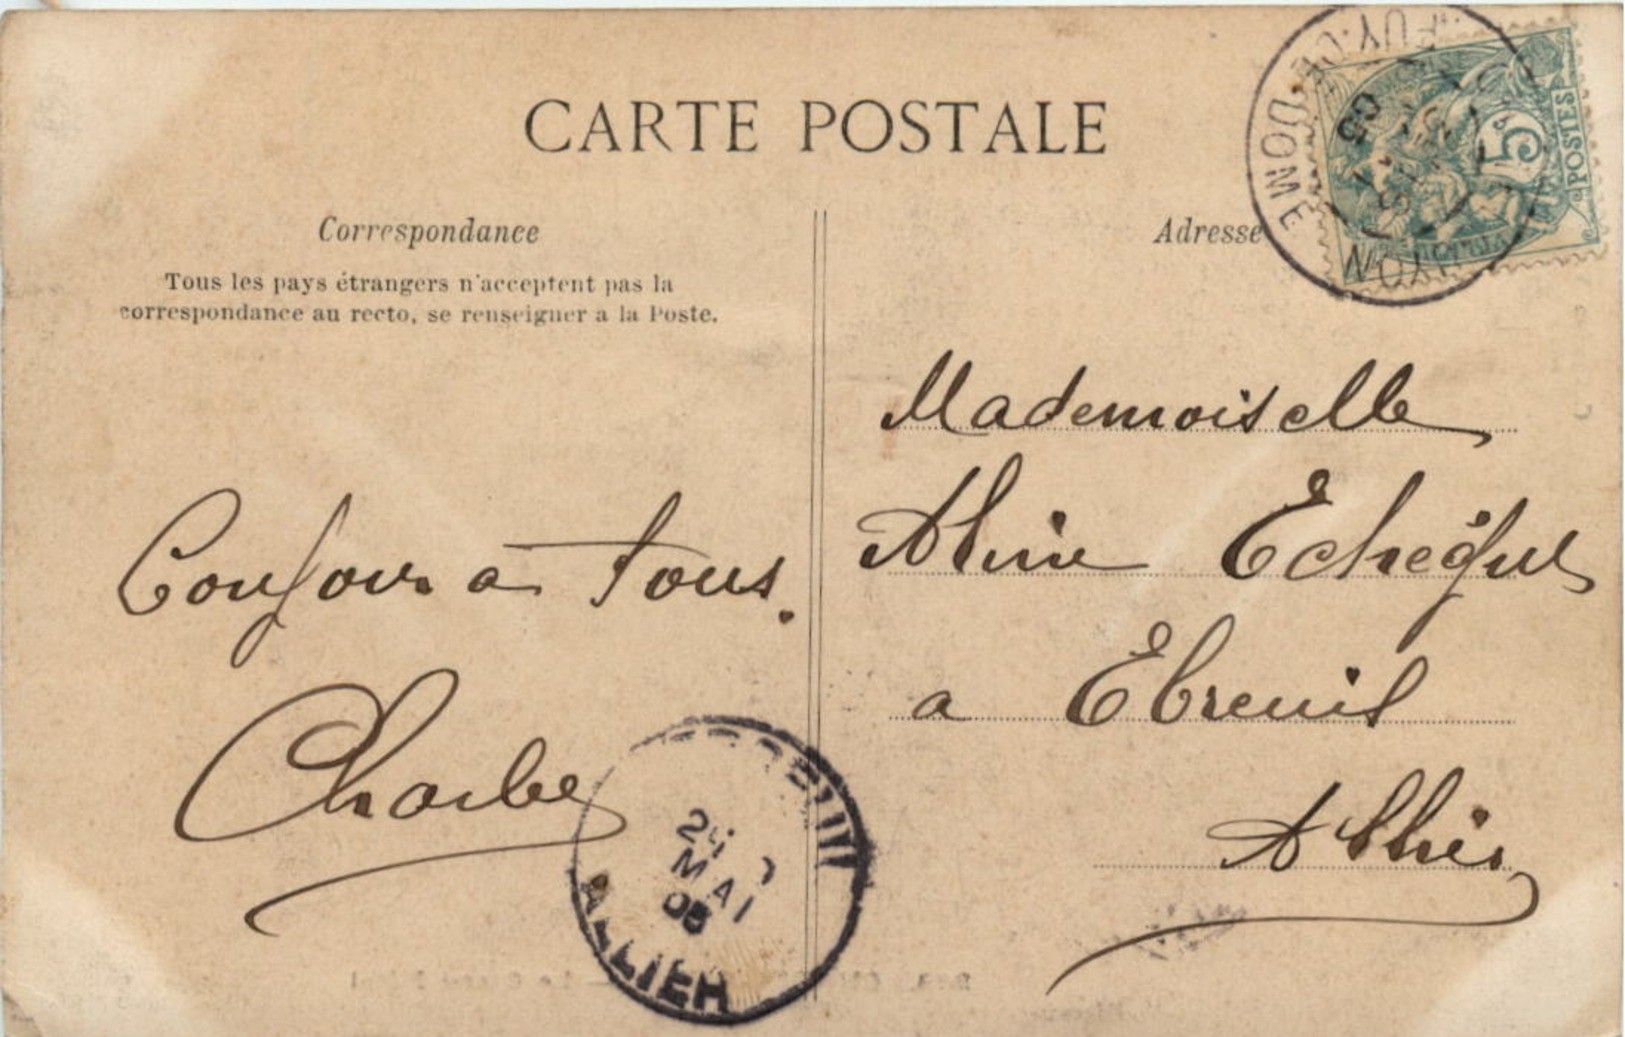 CARTE POSTALE
Correspondance
Tous les pays étrangers n'acceptent pas la
correspondance au recto, se renseigner a la Poste.
Adresse
5c
POSTES
PUY-DE-DOME
05
Mademoiselle
Aline
a Ebreuil
Allier
Bonjour a tous.
MAI
05
ALLIER